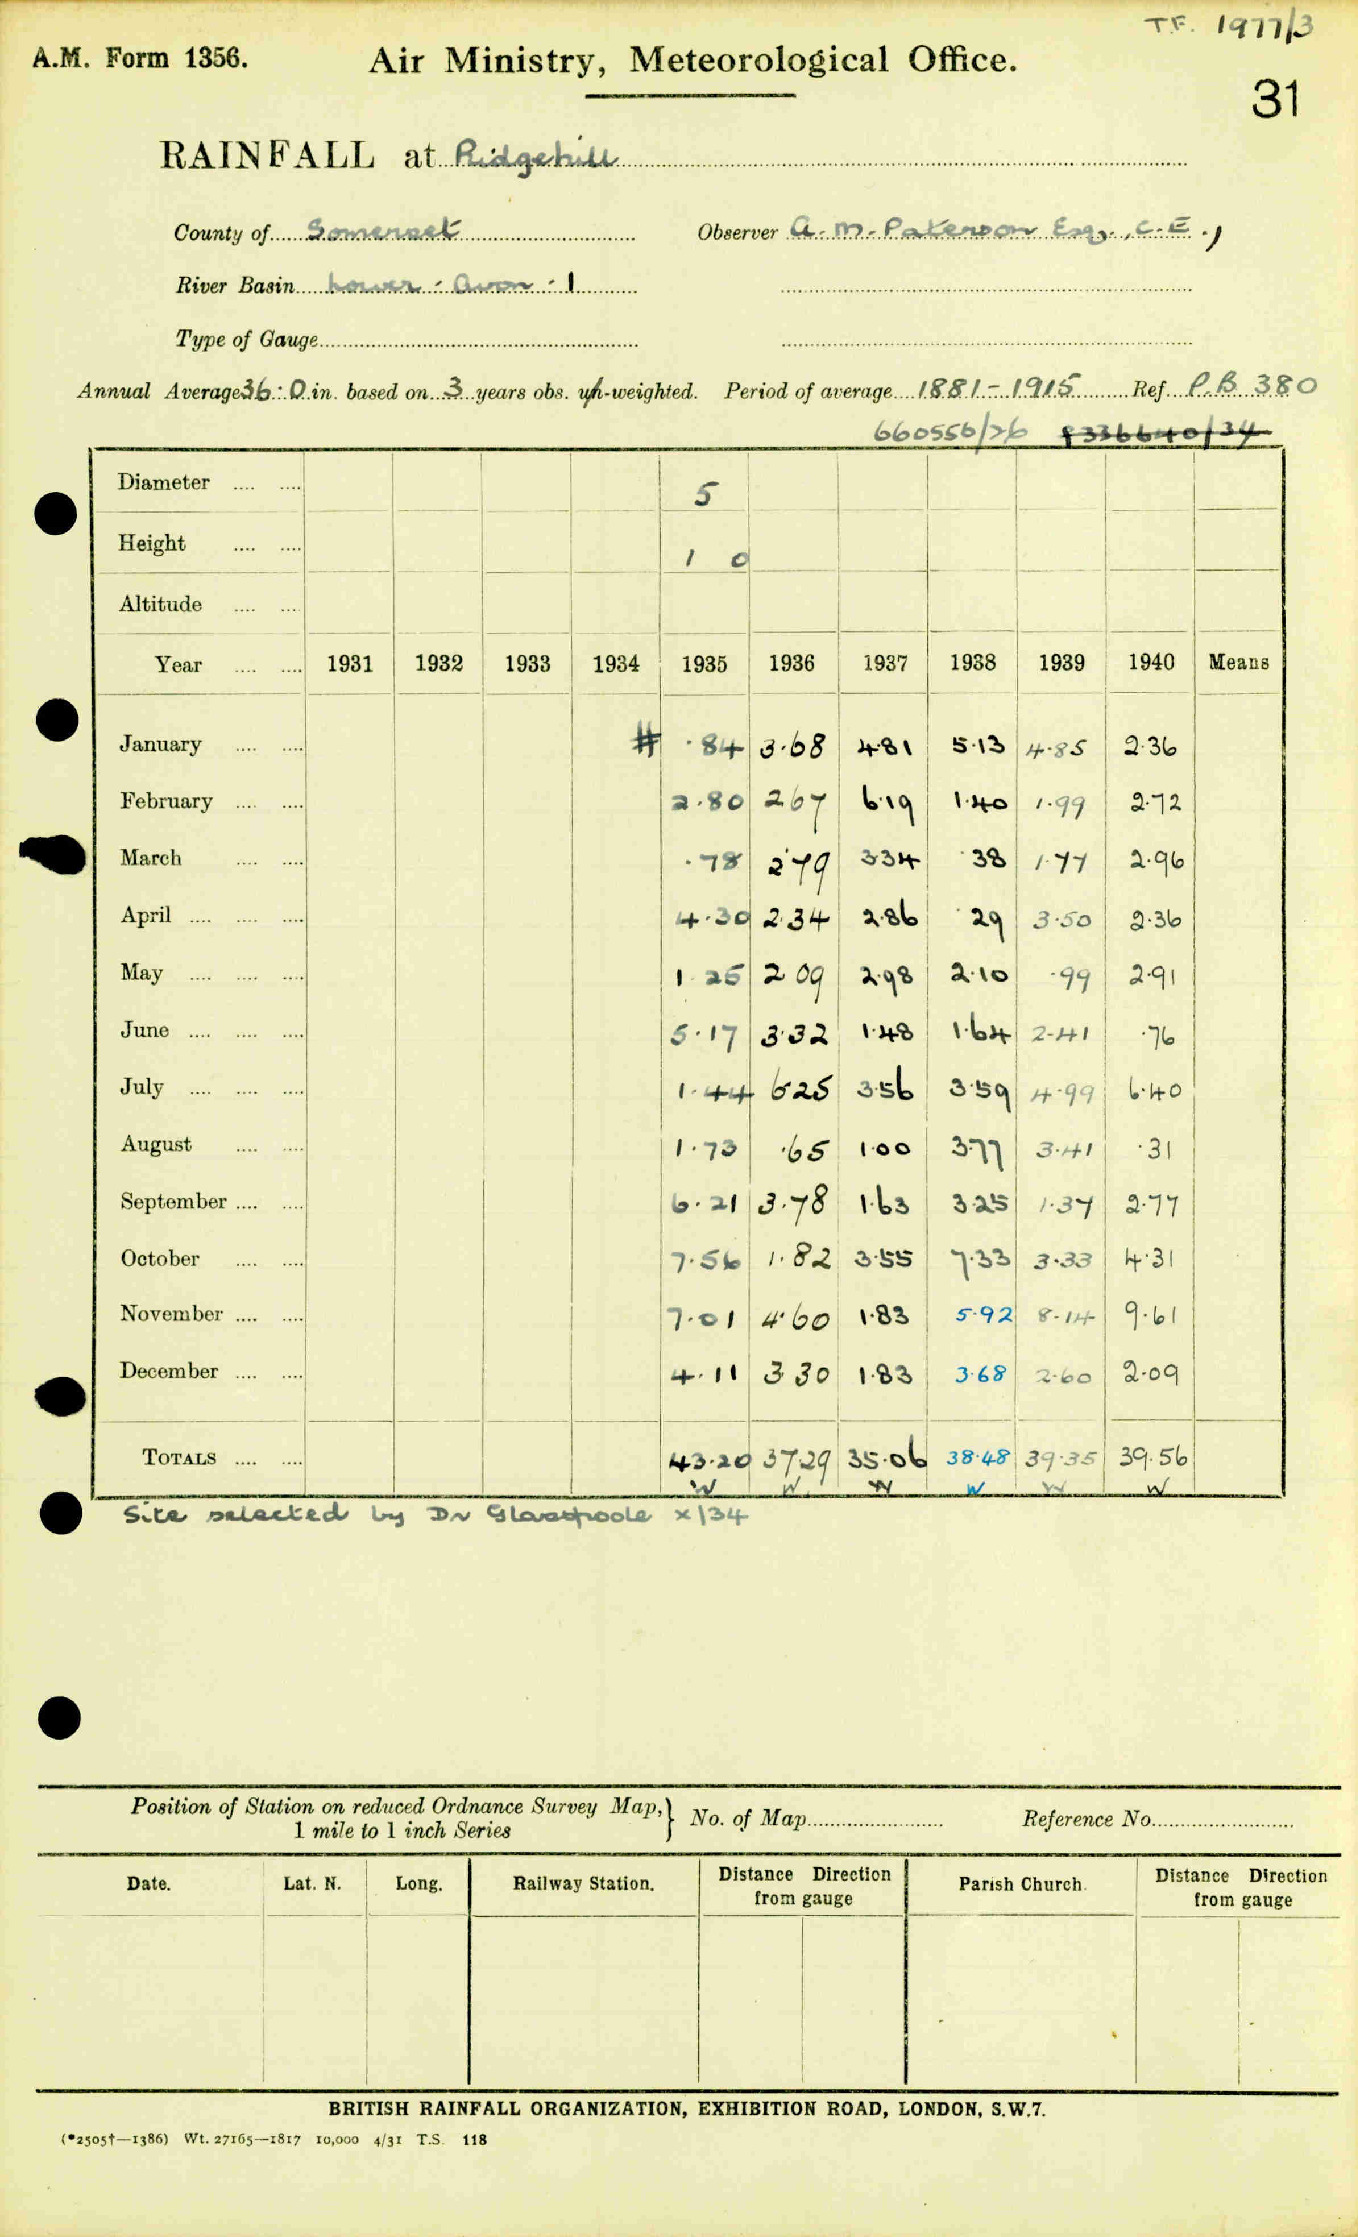 T.F. 1977/3
A.M. Form 1356. Air Ministry, Meteorological Office.
31
RAINFALL at Ridgehill
County of Somerset Observer A. M. Paterson Esq., C.E.,
River Basin Lower Avon 1
Type of Gauge
Annual Average 36.0 in. based on 3 years obs. un-weighted. Period of average 1881-1915 Ref. P.B 380
660556/26 f336640/34
Diameter .... .... 5
Height .... .... 1 0
Altitude .... ....
Year .... .... 1931 1932 1933 1934 1935 1936 1937 1938 1939 1940 Means
January .... .... # .84 3.68 4.81 5.13 4.85 2.36
February .... .... 2.80 2.67 6.19 1.40 1.99 2.72
March .... .... .78 2.79 3.34 .38 1.77 2.96
April .... .... .... 4.30 2.34 2.86 .29 3.50 2.36
May .... .... .... 1.25 2.09 2.98 2.10 .99 2.91
June .... .... .... 5.17 3.32 1.48 1.64 2.41 .76
July .... .... .... 1.44 6.25 3.56 3.59 4.99 6.40
August .... .... 1.73 .65 1.00 3.77 3.41 .31
September .... .... 6.21 3.78 1.63 3.25 1.37 2.77
October .... .... 7.56 1.82 3.55 7.33 3.33 4.31
November .... .... 7.01 4.60 1.83 5.92 8.14 9.61
December .... .... 4.11 3.30 1.83 3.68 2.60 2.09
TOTALS .... .... 43.20 37.29 35.06 38.48 39.35 39.56
W W W W W W
Site selected by Dr Glasspoole x/34
Position of Station on reduced Ordnance Survey Map,
1 mile to 1 inch Series } No. of Map Reference No.
Date. Lat. N. Long. Railway Station. Distance Direction from gauge Parish Church. Distance Direction from gauge
BRITISH RAINFALL ORGANIZATION, EXHIBITION ROAD, LONDON, S.W.7.
(*2505†—1386) Wt. 27165—1817 10,000 4/31 T.S. 118